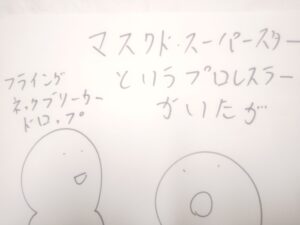 マスクド・スーパースター
というプロレスラー
がいたが
フライング
ネックブリーカー
ドロップ